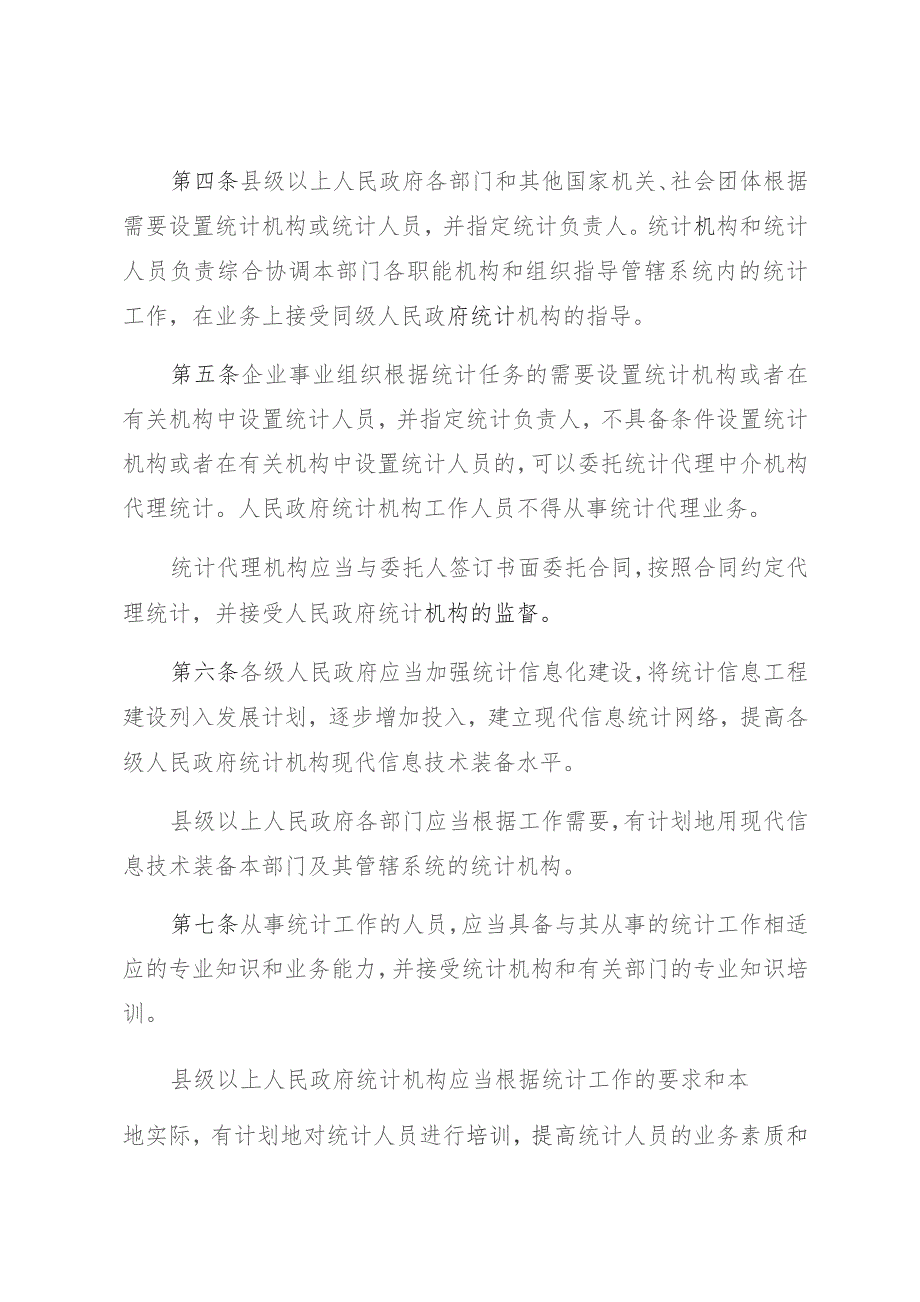 第四条县级以上人民政府各部门和其他国家机关、社会团体根据
需要设置统计机构或统计人员，并指定统计负责人。统计机构和统计
人员负责综合协调本部门各职能机构和组织指导管辖系统内的统计
工作，在业务上接受同级人民政府统计机构的指导。
第五条企业事业组织根据统计任务的需要设置统计机构或者在
有关机构中设置统计人员，并指定统计负责人，不具备条件设置统计
机构或者在有关机构中设置统计人员的，可以委托统计代理中介机构
代理统计。人民政府统计机构工作人员不得从事统计代理业务。
统计代理机构应当与委托人签订书面委托合同，按照合同约定代
理统计，并接受人民政府统计机构的监督。
第六条各级人民政府应当加强统计信息化建设，将统计信息工程
建设列入发展计划，逐步增加投入，建立现代信息统计网络，提高各
级人民政府统计机构现代信息技术装备水平。
县级以上人民政府各部门应当根据工作需要，有计划地用现代信
息技术装备本部门及其管辖系统的统计机构。
第七条从事统计工作的人员，应当具备与其从事的统计工作相适
应的专业知识和业务能力，并接受统计机构和有关部门的专业知识培
训。
县级以上人民政府统计机构应当根据统计工作的要求和本
地实际，有计划地对统计人员进行培训，提高统计人员的业务素质和